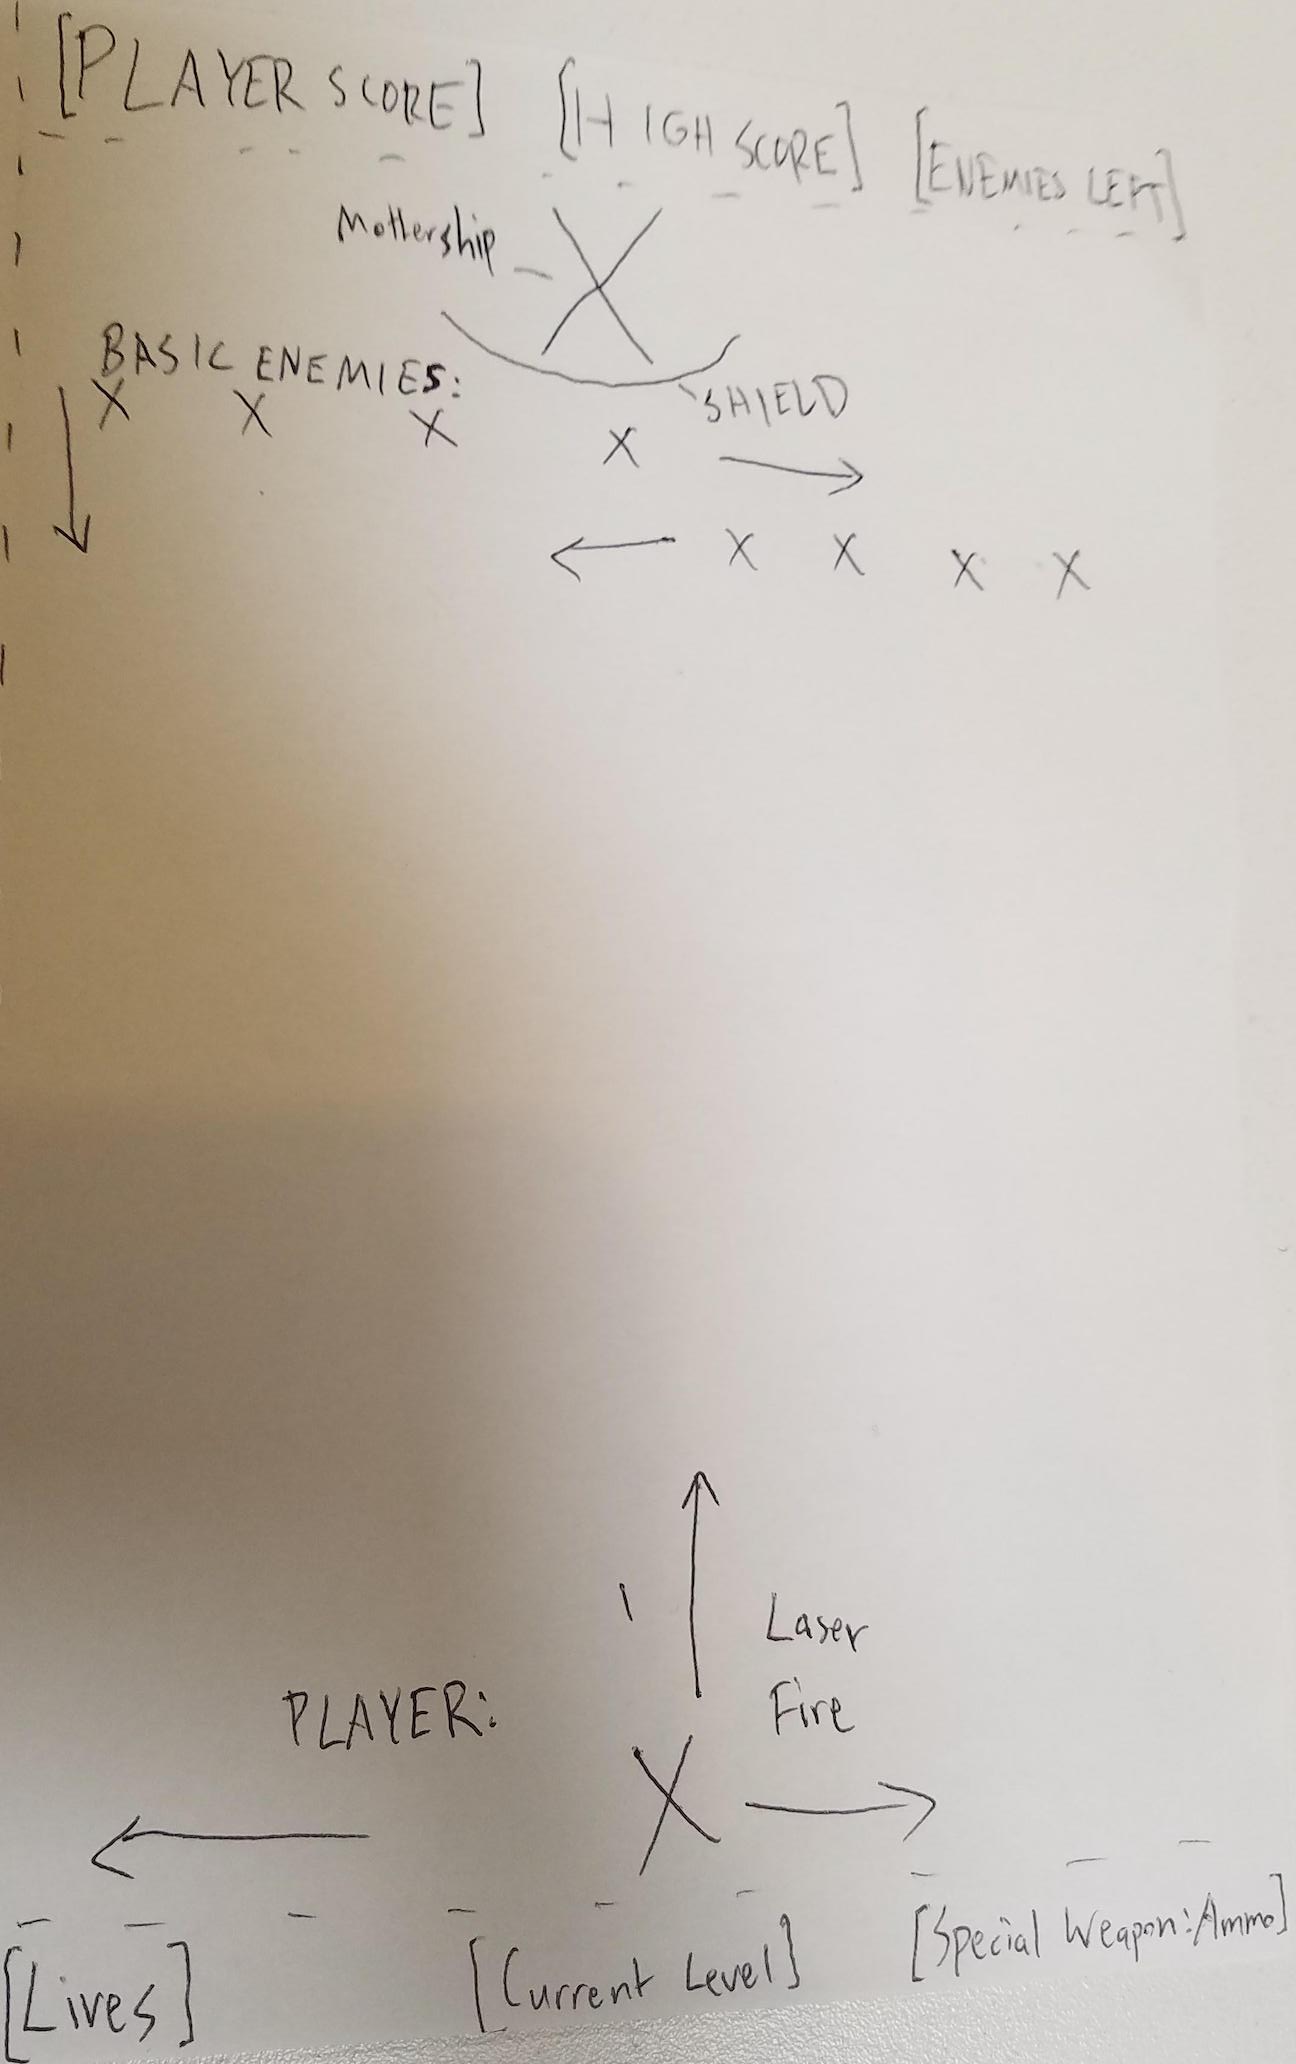 [PLAYER SCORE] [HIGH SCORE] [ENEMIES LEFT]
Mothership
BASIC ENEMIES:
SHIELD
X X X X
X X X X
Laser
Fire
PLAYER:
X
[Lives] [Current Level] [Special Weapon: Ammo]